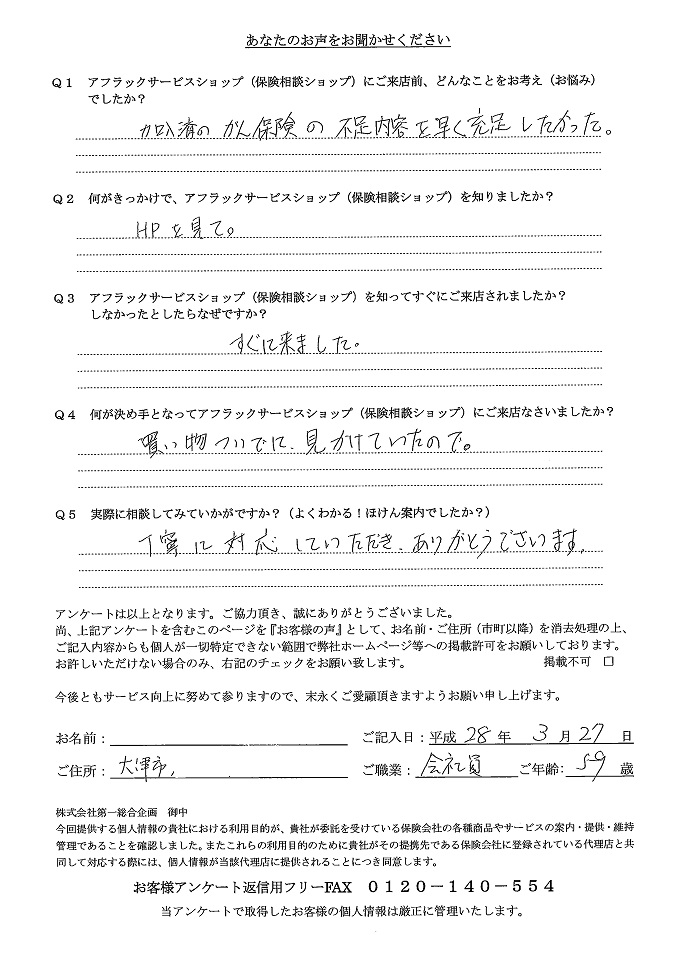 あなたのお声をお聞かせください
Q1 アフラックサービスショップ（保険相談ショップ）にご来店前、どんなことをお考え（お悩み）
でしたか？
加入済の がん保険 の 不足内容 を 早く 充足 したかった。
Q2 何がきっかけで、アフラックサービスショップ（保険相談ショップ）を知りましたか？
HP を 見て。
Q3 アフラックサービスショップ（保険相談ショップ）を知ってすぐにご来店されましたか？
しなかったとしたらなぜですか？
すぐに来ました。
Q4 何が決め手となってアフラックサービスショップ（保険相談ショップ）にご来店なさいましたか？
買い物ついでに、見かけていたので。
Q5 実際に相談してみていかがですか？（よくわかる！ほけん案内でしたか？）
丁寧に 対応 していただき、ありがとうございます。
アンケートは以上となります。ご協力頂き、誠にありがとうございました。
尚、上記アンケートを含むこのページを『お客様の声』として、お名前・ご住所（市町以降）を消去処理の上、
ご記入内容からも個人が一切特定できない範囲で弊社ホームページ等への掲載許可をお願いしております。
お許しいただけない場合のみ、右記のチェックをお願い致します。 掲載不可 □
今後ともサービス向上に努めて参りますので、末永くご愛顧頂きますようお願い申し上げます。
お名前： ご記入日：平成 28 年 3 月 27 日
ご住所： 大津市, ご職業： 会社員 ご年齢： 59 歳
株式会社第一総合企画 御中
今回提供する個人情報の貴社における利用目的が、貴社が委託を受けている保険会社の各種商品やサービスの案内・提供・維持
管理であることを確認しました。またこれらの利用目的のために貴社がその提携先である保険会社に登録されている代理店と共
同して対応する際には、個人情報が当該代理店に提供されることにつき同意します。
お客様アンケート返信用フリーFAX ０１２０－１４０－５５４
当アンケートで取得したお客様の個人情報は厳正に管理いたします。